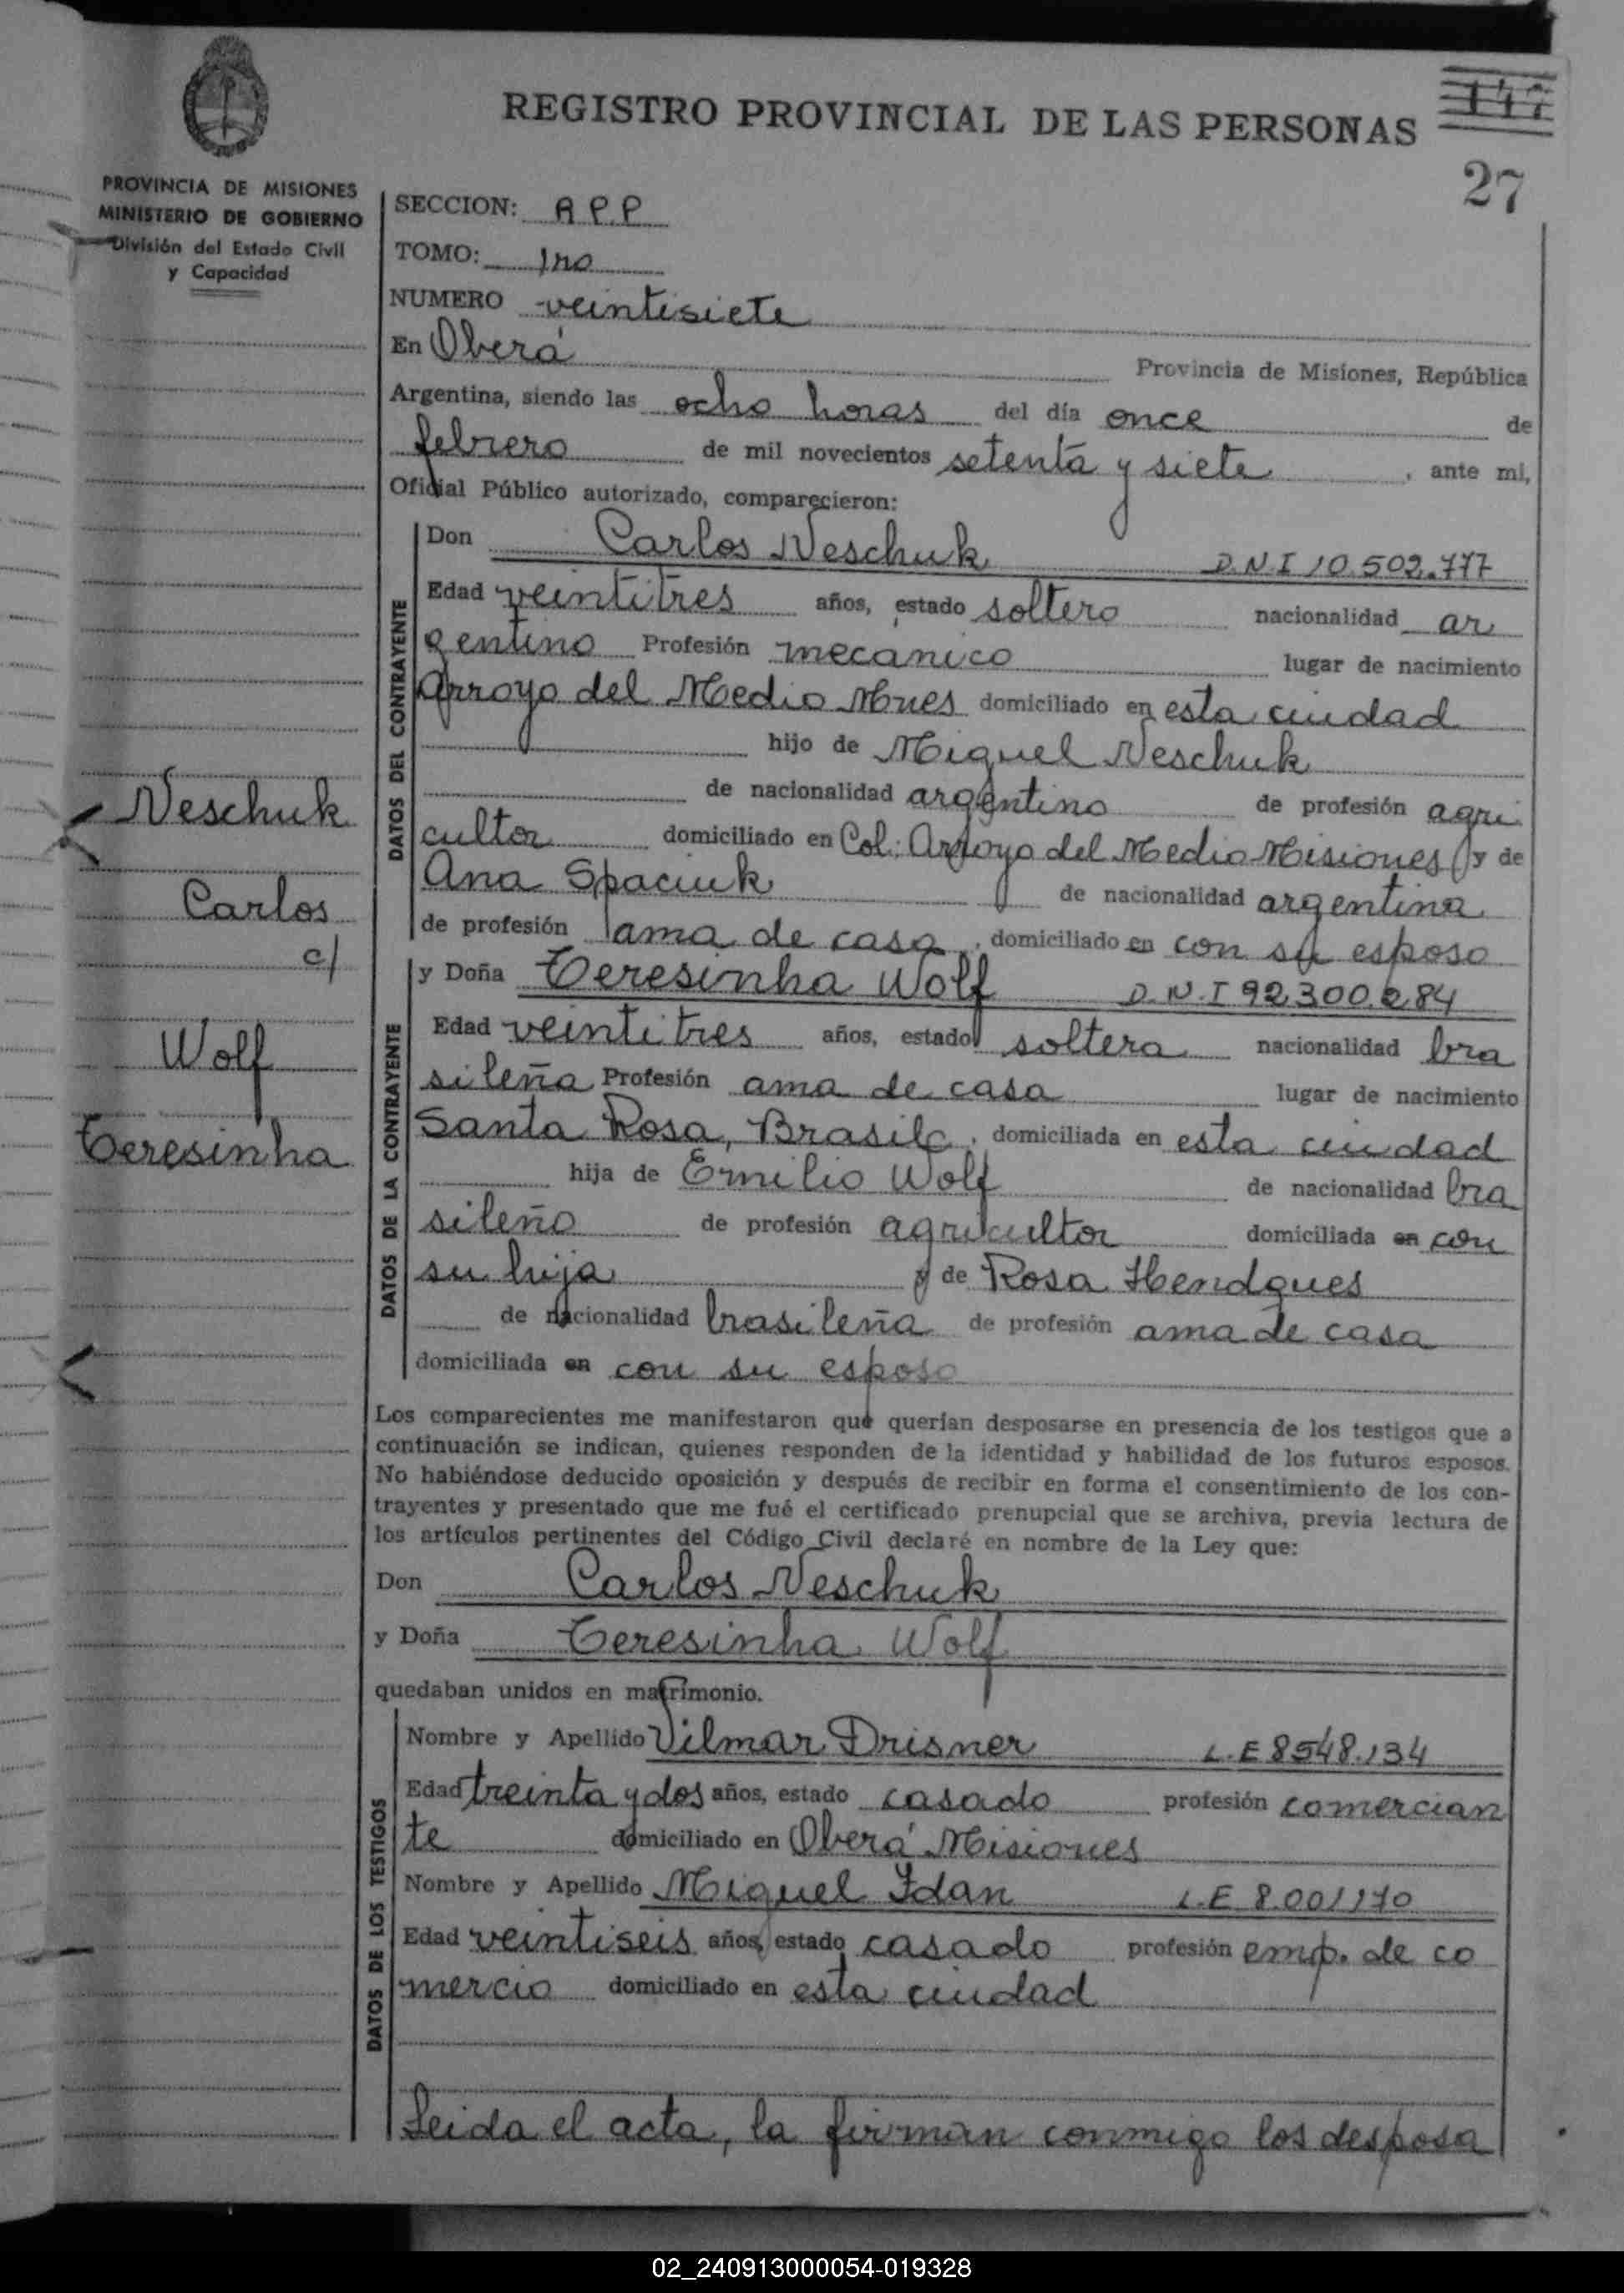 147
REGISTRO PROVINCIAL DE LAS PERSONAS
27
PROVINCIA DE MISIONES
MINISTERIO DE GOBIERNO
División del Estado Civil
y Capacidad
SECCION: A P P
TOMO: 1ro
NUMERO veintisiete
En Oberá Provincia de Misiones, República
Argentina, siendo las ocho horas del día once de
febrero de mil novecientos setenta y siete, ante mi,
Oficial Público autorizado, comparecieron:
DATOS DEL CONTRAYENTE
Don Carlos Neschuk D.N.I 10.502.777
Edad veintitres años, estado soltero nacionalidad ar
gentino Profesión mecánico lugar de nacimiento
Arroyo del Medio Mnes domiciliado en esta ciudad
hijo de Miguel Neschuk
de nacionalidad argentino de profesión agri
cultor domiciliado en Col: Arroyo del Medio Misiones y de
Ana Spaciuk de nacionalidad argentina
de profesión ama de casa, domiciliado en con su esposo
Neschuk
Carlos
c/
Wolf
Teresinha
DATOS DE LA CONTRAYENTE
y Doña Teresinha Wolf D.N.I 92.300.284
Edad veintitres años, estado soltera nacionalidad bra
sileña Profesión ama de casa lugar de nacimiento
Santa Rosa, Brasil, domiciliada en esta ciudad
hija de Emilio Wolf de nacionalidad bra
sileño de profesión agricultor domiciliada en con
su hija y de Rosa Hendques
de nacionalidad brasileña de profesión ama de casa
domiciliada en con su esposo
Los comparecientes me manifestaron que querían desposarse en presencia de los testigos que a
continuación se indican, quienes responden de la identidad y habilidad de los futuros esposos.
No habiéndose deducido oposición y después de recibir en forma el consentimiento de los con-
trayentes y presentado que me fué el certificado prenupcial que se archiva, previa lectura de
los artículos pertinentes del Código Civil declaré en nombre de la Ley que:
Don Carlos Neschuk
y Doña Teresinha Wolf
quedaban unidos en matrimonio.
DATOS DE LOS TESTIGOS
Nombre y Apellido Vilmar Drisner L.E 8548.134
Edad treinta y dos años, estado casado profesión comercian
te domiciliado en Oberá Misiones
Nombre y Apellido Miguel Idan L.E 8.001170
Edad veintiseis años, estado casado profesión emp. de co
mercio domiciliado en esta ciudad
Leida el acta, la firman conmigo los desposa
02_240913000054-019328